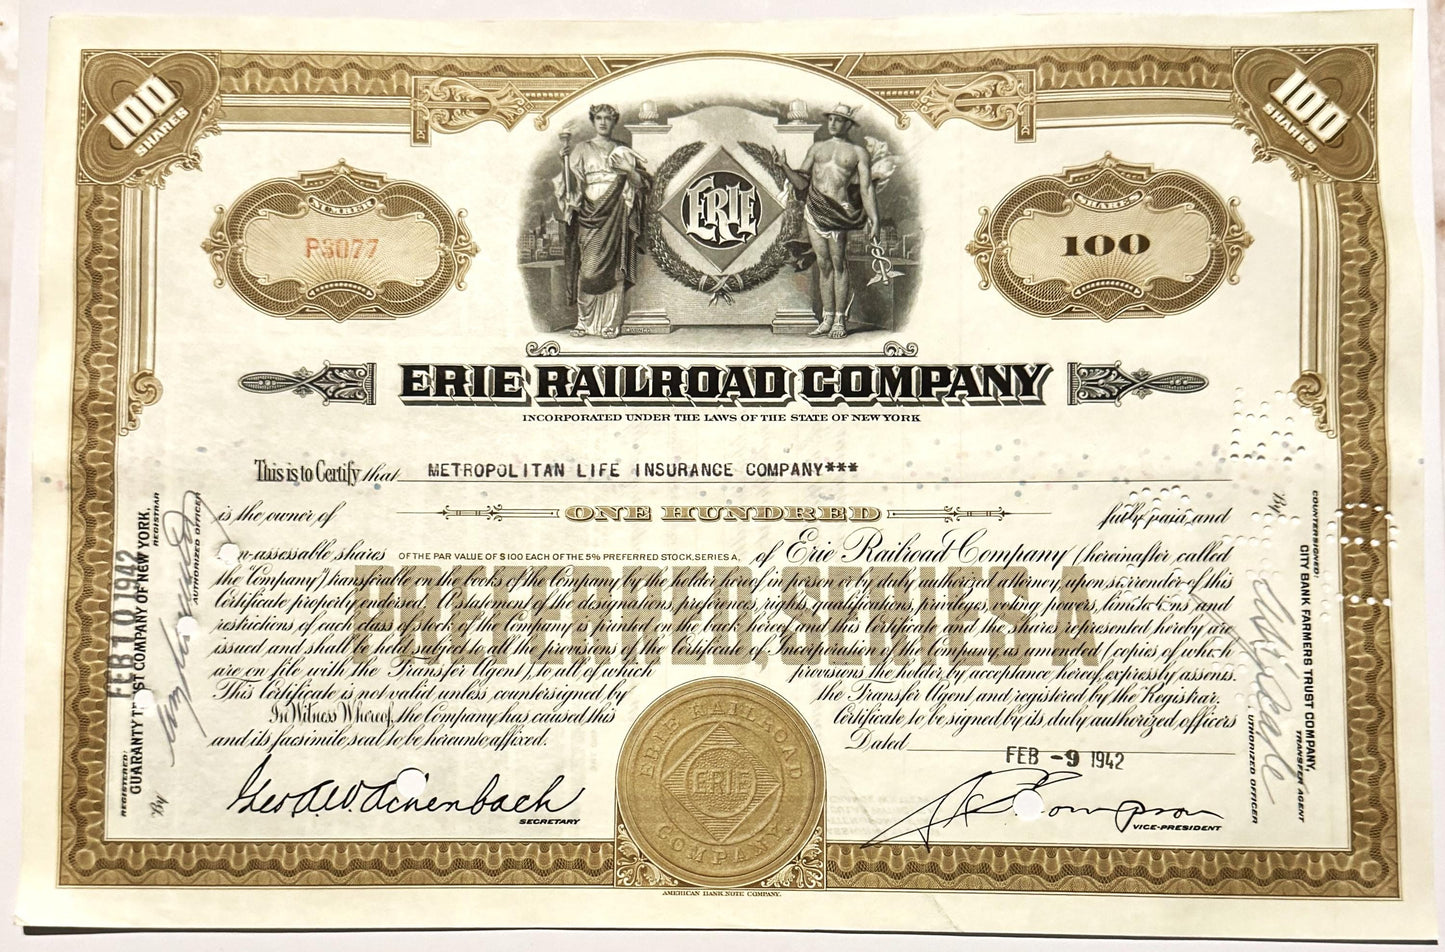 100 SHARES
100 SHARES
NUMBER
P5077
ERIE
SHARES
100
ERIE RAILROAD COMPANY
INCORPORATED UNDER THE LAWS OF THE STATE OF NEW YORK
This is to Certify that METROPOLITAN LIFE INSURANCE COMPANY***
is the owner of ONE HUNDRED fully paid and
non-assessable shares OF THE PAR VALUE OF $100 EACH OF THE 5% PREFERRED STOCK, SERIES A, of Erie Railroad Company (hereinafter called
the "Company") transferable on the books of the Company by the holder hereof in person or by duly authorized attorney, upon surrender of this
Certificate properly endorsed. A statement of the designations, preferences, rights, qualifications, privileges, voting powers, limitations, and
restrictions of each class of stock of the Company is printed on the back hereof and this Certificate and the shares represented hereby are
issued and shall be held subject to all the provisions of the Certificate of Incorporation of the Company, as amended (copies of which
are on file with the Transfer Agent), to all of which provisions the holder by acceptance hereof, expressly assents.
This Certificate is not valid unless countersigned by the Transfer Agent and registered by the Registrar.
In Witness Whereof, the Company has caused this Certificate to be signed by its duly authorized officers
and its facsimile seal to be hereunto affixed.
Dated FEB -9 1942
PREFERRED, SERIES A
Geo. W. Achenbach
SECRETARY
ERIE RAILROAD
ERIE
COMPANY
Thompson
VICE-PRESIDENT
AMERICAN BANK NOTE COMPANY.
REGISTERED:
GUARANTY TRUST COMPANY OF NEW YORK,
REGISTRAR
By
AUTHORIZED OFFICER
FEB 10 1942
COUNTERSIGNED:
CITY BANK FARMERS TRUST COMPANY,
TRANSFER AGENT
By
AUTHORIZED OFFICER